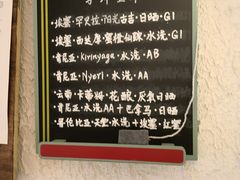 ·埃塞·罕贝拉·阳光古吉·日晒·G1
·埃塞·西达摩·蜜橙细踪·水洗·G1
·肯尼亚·Kirinyaga·水洗·AB
·肯尼亚·Nyeri·水洗·AA
·云南·卡蒂姆·花酿·厌氧日晒
·肯尼亚·水洗AA+巴拿马·日晒
·哥伦比亚·天堂·水洗+埃塞·红蜜